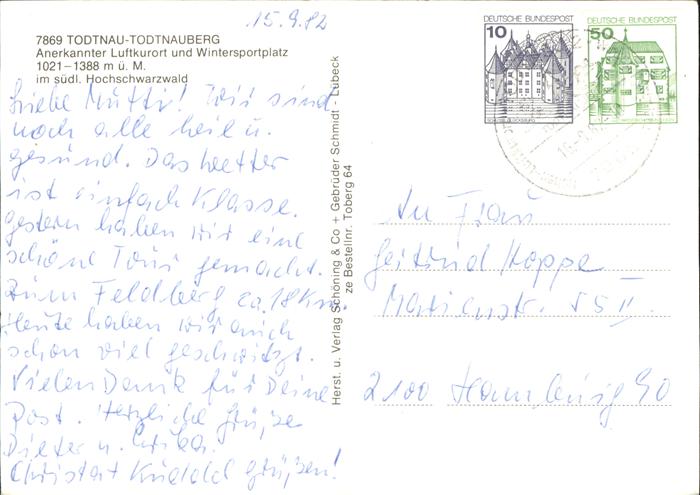 15.9.82
7869 TODTNAU-TODTNAUBERG
Anerkannter Luftkurort und Wintersportplatz
1021–1388 m ü. M.
im südl. Hochschwarzwald
Liebe Mutti! Wir sind
noch alle heil u.
gesund. Das Wetter
ist einfach Klasse.
Gestern haben wir eine
schöne Tour gemacht.
Zum Feldberg ca. 18 Km.
Heute haben wir auch
schon viel geschwitzt.
Vielen Dank für Deine
Post. Herzliche Grüße
Dieter u. Erika.
Christa + grüßen!
Herst. u. Verlag Schöning & Co + Gebrüder Schmidt - Lübeck
ze Bestellnr. Toberg 64
DEUTSCHE BUNDESPOST
10
SCHLOSS GLÜCKSBURG
DEUTSCHE BUNDESPOST
50
An Frau
Gertrud Hoppe
Marienstr. 55 II.
2100 Hamburg 90